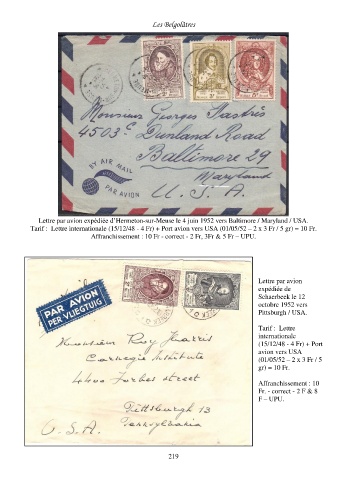 Les Belgolâtres
Monsieur Georges Mastrès
4503 C Dunland Road
Baltimore 29
Maryland
U. S. A.
BY AIR MAIL
PAR AVION
Lettre par avion expédiée d'Hermeton-sur-Meuse le 4 juin 1952 vers Baltimore / Maryland / USA.
Tarif : Lettre internationale (15/12/48 - 4 Fr) + Port avion vers USA (01/05/52 – 2 x 3 Fr / 5 gr) = 10 Fr.
Affranchissement : 10 Fr - correct - 2 Fr, 3Fr & 5 Fr – UPU.
PAR AVION
PER VLIEGTUIG
Monsieur Roy Harris
Carnegie Institute
4400 Forbes street
Pittsburgh 13
Pennsylvania
U.S.A.
Lettre par avion
expédiée de
Schaerbeek le 12
octobre 1952 vers
Pittsburgh / USA.
Tarif : Lettre
internationale
(15/12/48 - 4 Fr) + Port
avion vers USA
(01/05/52 – 2 x 3 Fr / 5
gr) = 10 Fr.
Affranchissement : 10
Fr. - correct - 2 F & 8
F – UPU.
219